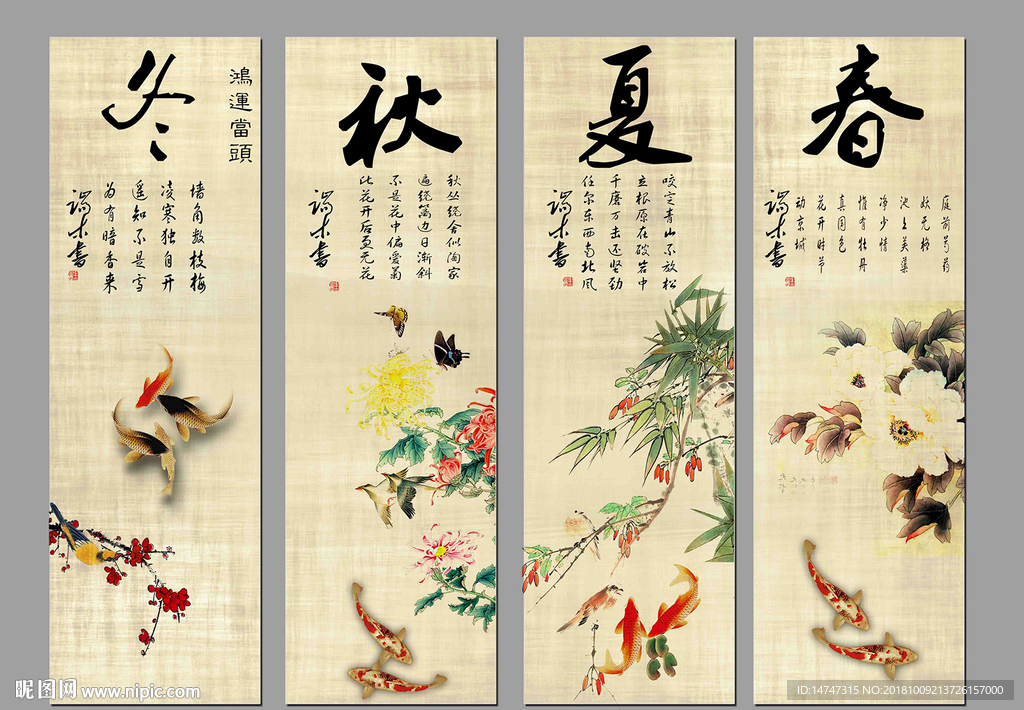 春
庭前芍药
妖无格
池上芙蕖
净少情
惟有牡丹
真国色
花开时节
动京城
端木书
夏
咬定青山不放松
立根原在破岩中
千磨万击还坚劲
任尔东西南北风
端木书
秋
秋丛绕舍似陶家
遍绕篱边日渐斜
不是花中偏爱菊
此花开后更无花
端木书
鴻運當頭
冬
墙角数枝梅
凌寒独自开
遥知不是雪
为有暗香来
端木书
昵图网 www.nipic.com
ID:14747315 NO:20181009213726157000